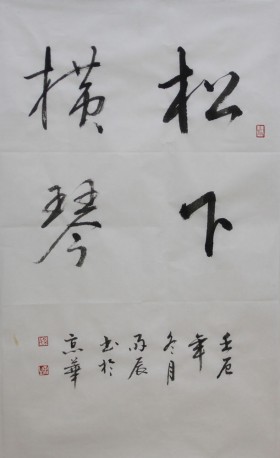 松下
横琴
壬辰
年
冬月
雨辰
书於
京華